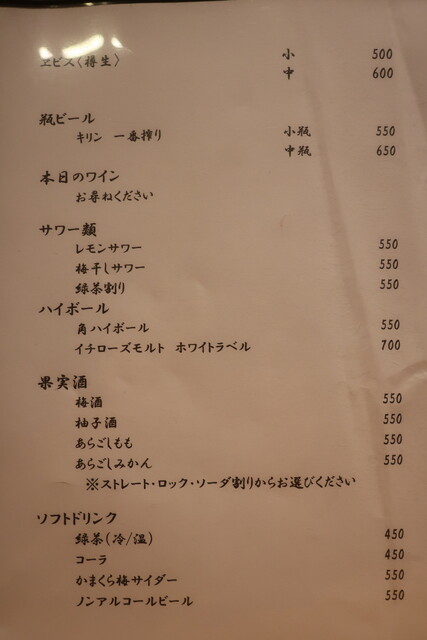 ヱビス〈樽生〉 小 500
中 600
瓶ビール
キリン 一番搾り 小瓶 550
中瓶 650
本日のワイン
お尋ねください
サワー類
レモンサワー 550
梅干しサワー 550
緑茶割り 550
ハイボール
角ハイボール 550
イチローズモルト ホワイトラベル 700
果実酒
梅酒 550
柚子酒 550
あらごしもも 550
あらごしみかん 550
※ストレート・ロック・ソーダ割りからお選びください
ソフトドリンク
緑茶(冷/温) 450
コーラ 450
かまくら梅サイダー 550
ノンアルコールビール 550